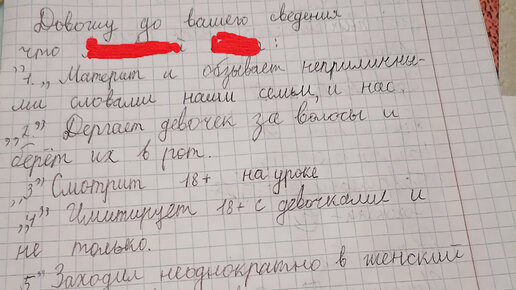 Довожу до вашего сведения
что й :
„1.„ Материт и обзывает неприличны-
ми словами наши семьи, и нас.
„2.” Дергает девочек за волосы и
берёт их в рот.
„3” Смотрит 18+ на уроке
„4” Имитирует 18+ с девочками и
не только.
5” Заходил неоднократно в женский